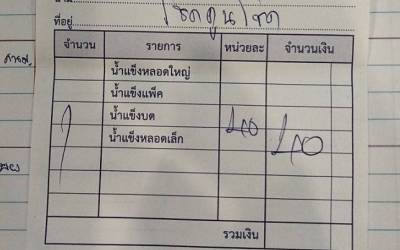 ที่อยู่ โชคคูนโชค
จำนวน รายการ หน่วยละ จำนวนเงิน
น้ำแข็งหลอดใหญ่
น้ำแข็งแพ็ค
1 น้ำแข็งบด 40 40
น้ำแข็งหลอดเล็ก
รวมเงิน